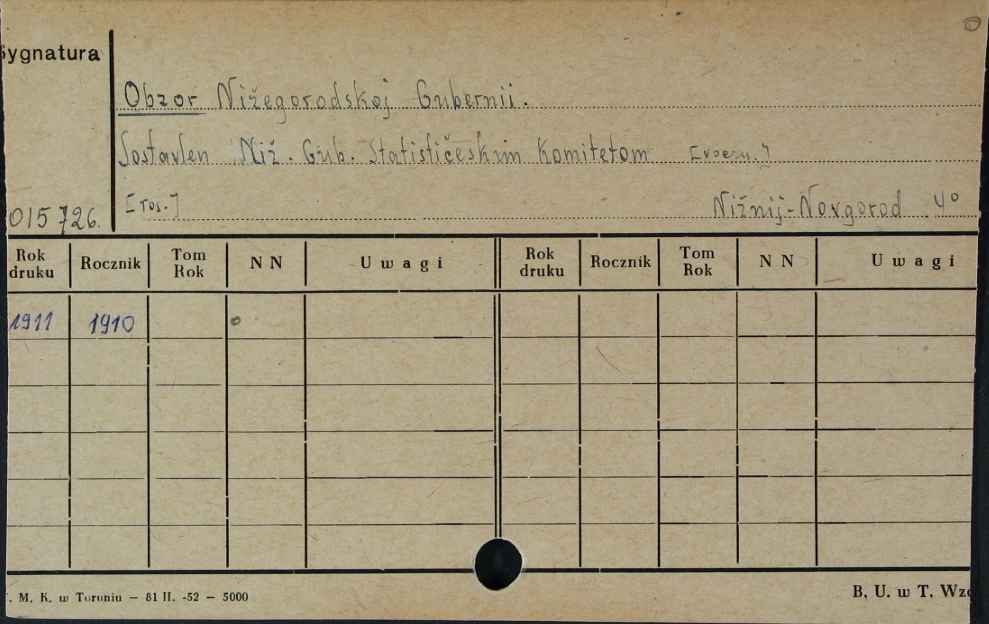 Sygnatura
Obzor Nižegorodskoj Gubernii.
Sostavlen Niž. Gub. Statističeskim Komitetom [roczn.]
[ros.]
015726. Nižnij-Novgorod 4°
Rok druku Rocznik Tom Rok N N Uwagi Rok druku Rocznik Tom Rok N N Uwagi
1911 1910
. M. K. w Toruniu — 81 II. -52 — 5000
B. U. w T. Wzó